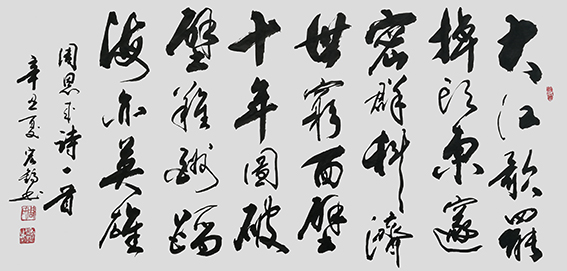 大江歌罷
掉頭東邃
密群科濟
世窮面壁
十年圖破
壁難酬蹈
海亦英雄
周恩来詩一首
辛丑夏